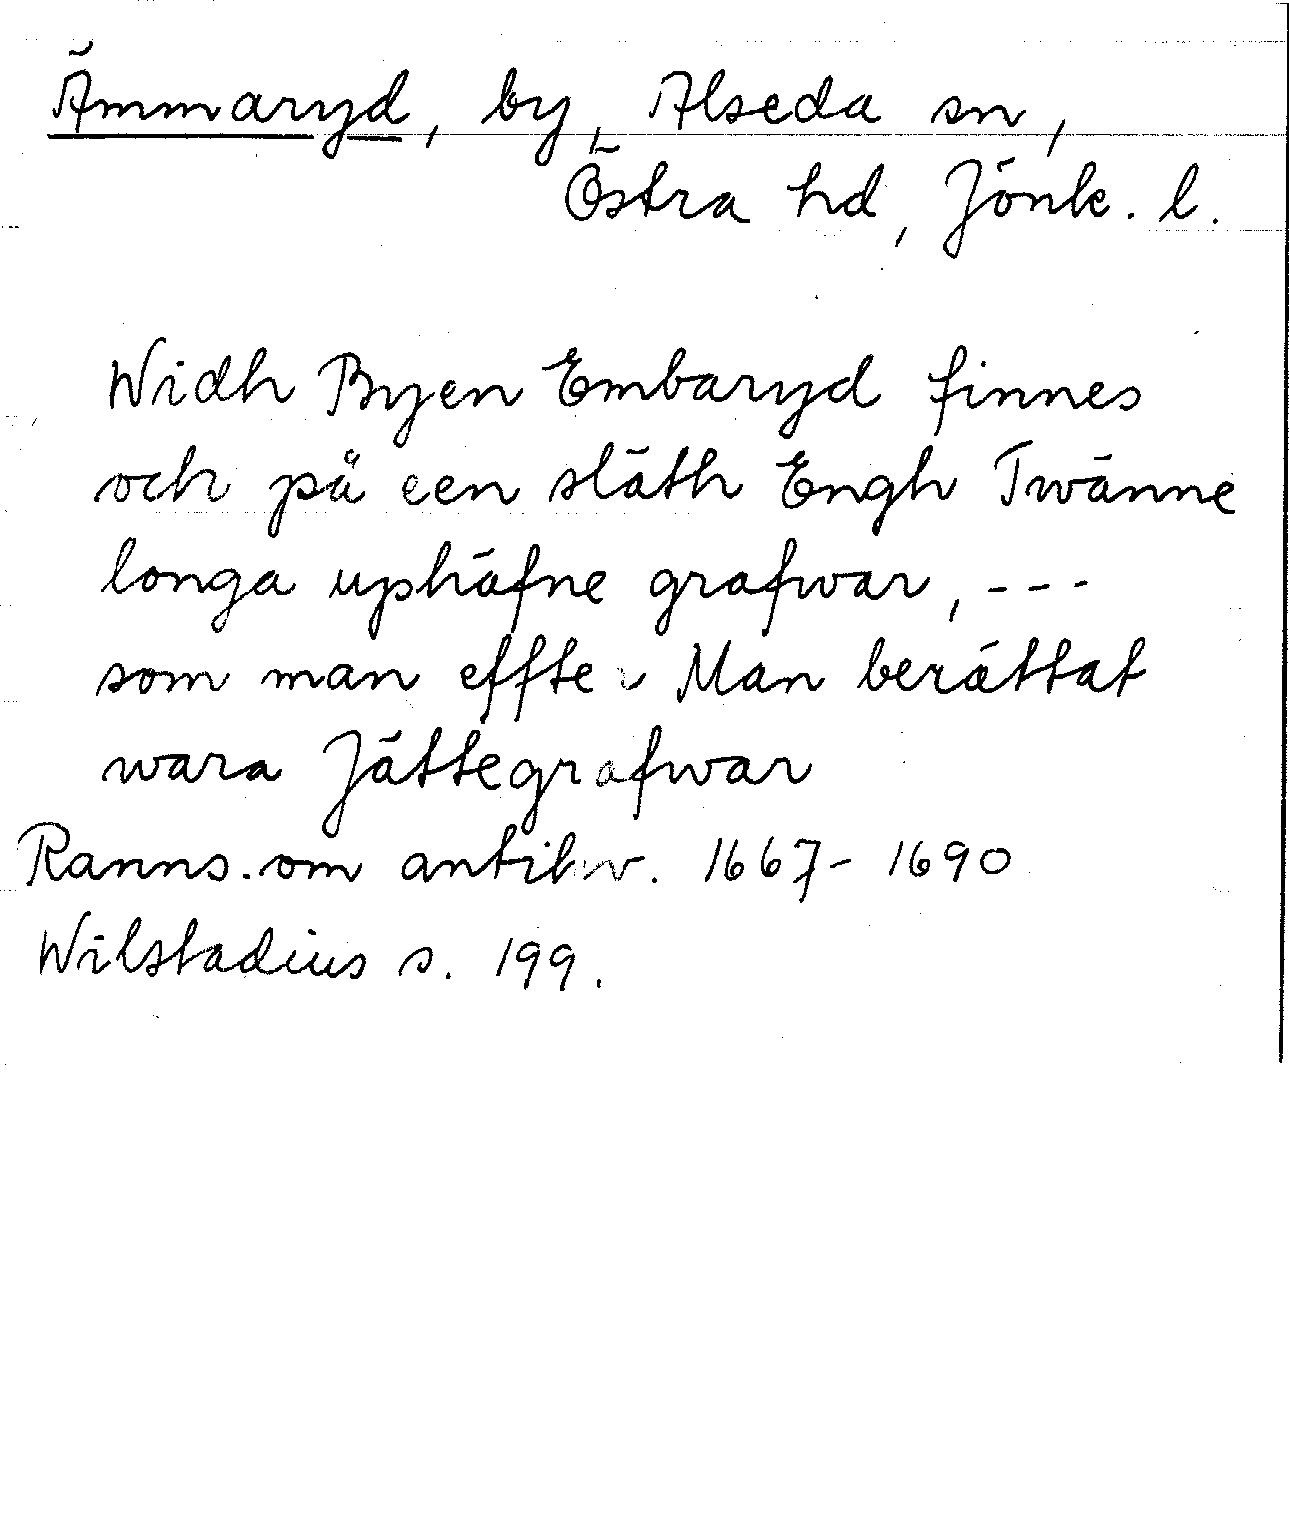 Ämmaryd, by, Alseda sn,
Östra hd, Jönk. l.
Widh Byen Embaryd finnes
och på een släth Engh Twänne
longa uphäfne grafwar, ---
som man effter Man berättat
wara Jättegrafwar
Ranns. om antikv. 1667-1690
Wilstadius s. 199.